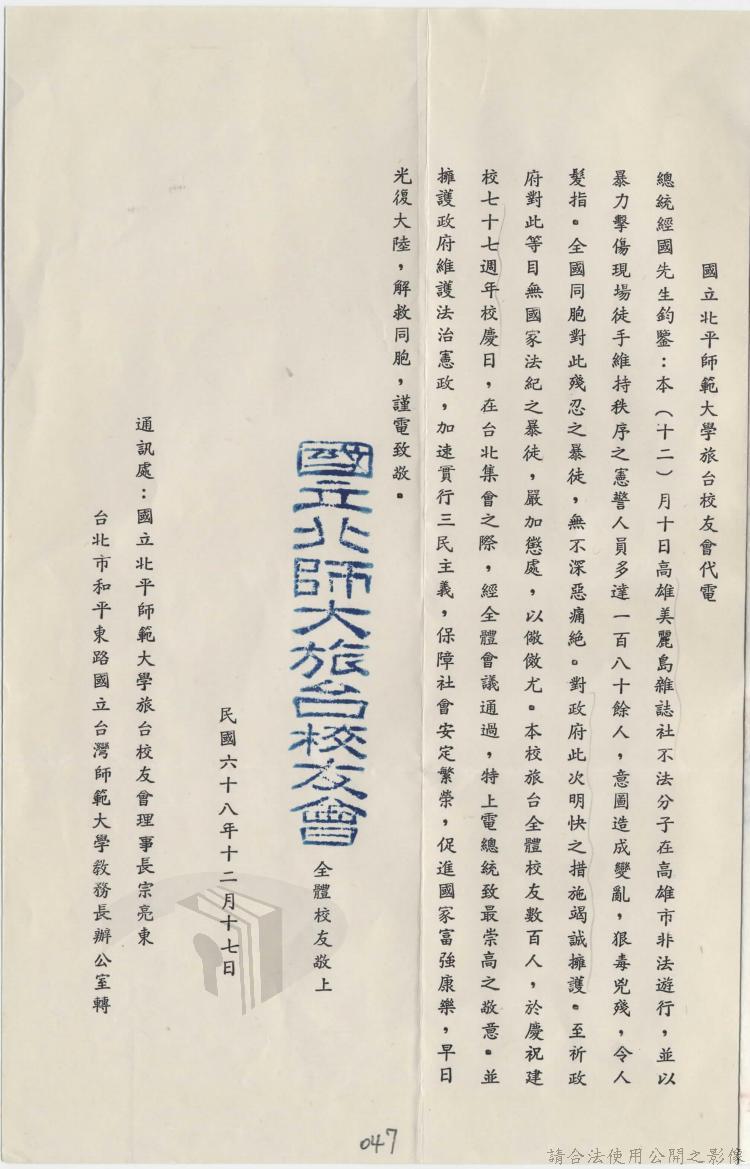 國立北平師範大學旅台校友會代電
總統經國先生鈞鑒：本（十二）月十日高雄美麗島雜誌社不法分子在高雄市非法遊行，並以
暴力擊傷現場徒手維持秩序之憲警人員多達一百八十餘人，意圖造成變亂，狠毒兇殘，令人
髮指。全國同胞對此殘忍之暴徒，無不深惡痛絕。對政府此次明快之措施竭誠擁護。至祈政
府對此等目無國家法紀之暴徒，嚴加懲處，以儆傚尤。本校旅台全體校友數百人，於慶祝建
校七十七週年校慶日，在台北集會之際，經全體會議通過，特上電總統致最崇高之敬意。並
擁護政府維護法治憲政，加速貫行三民主義，保障社會安定繁榮，促進國家富強康樂，早日
光復大陸，解救同胞，謹電致敬。
國立北師大旅台校友會 全體校友敬上
民國六十八年十二月十七日
通訊處：國立北平師範大學旅台校友會理事長宗亮東
台北市和平東路國立台灣師範大學教務長辦公室轉
047
請合法使用公開之影像